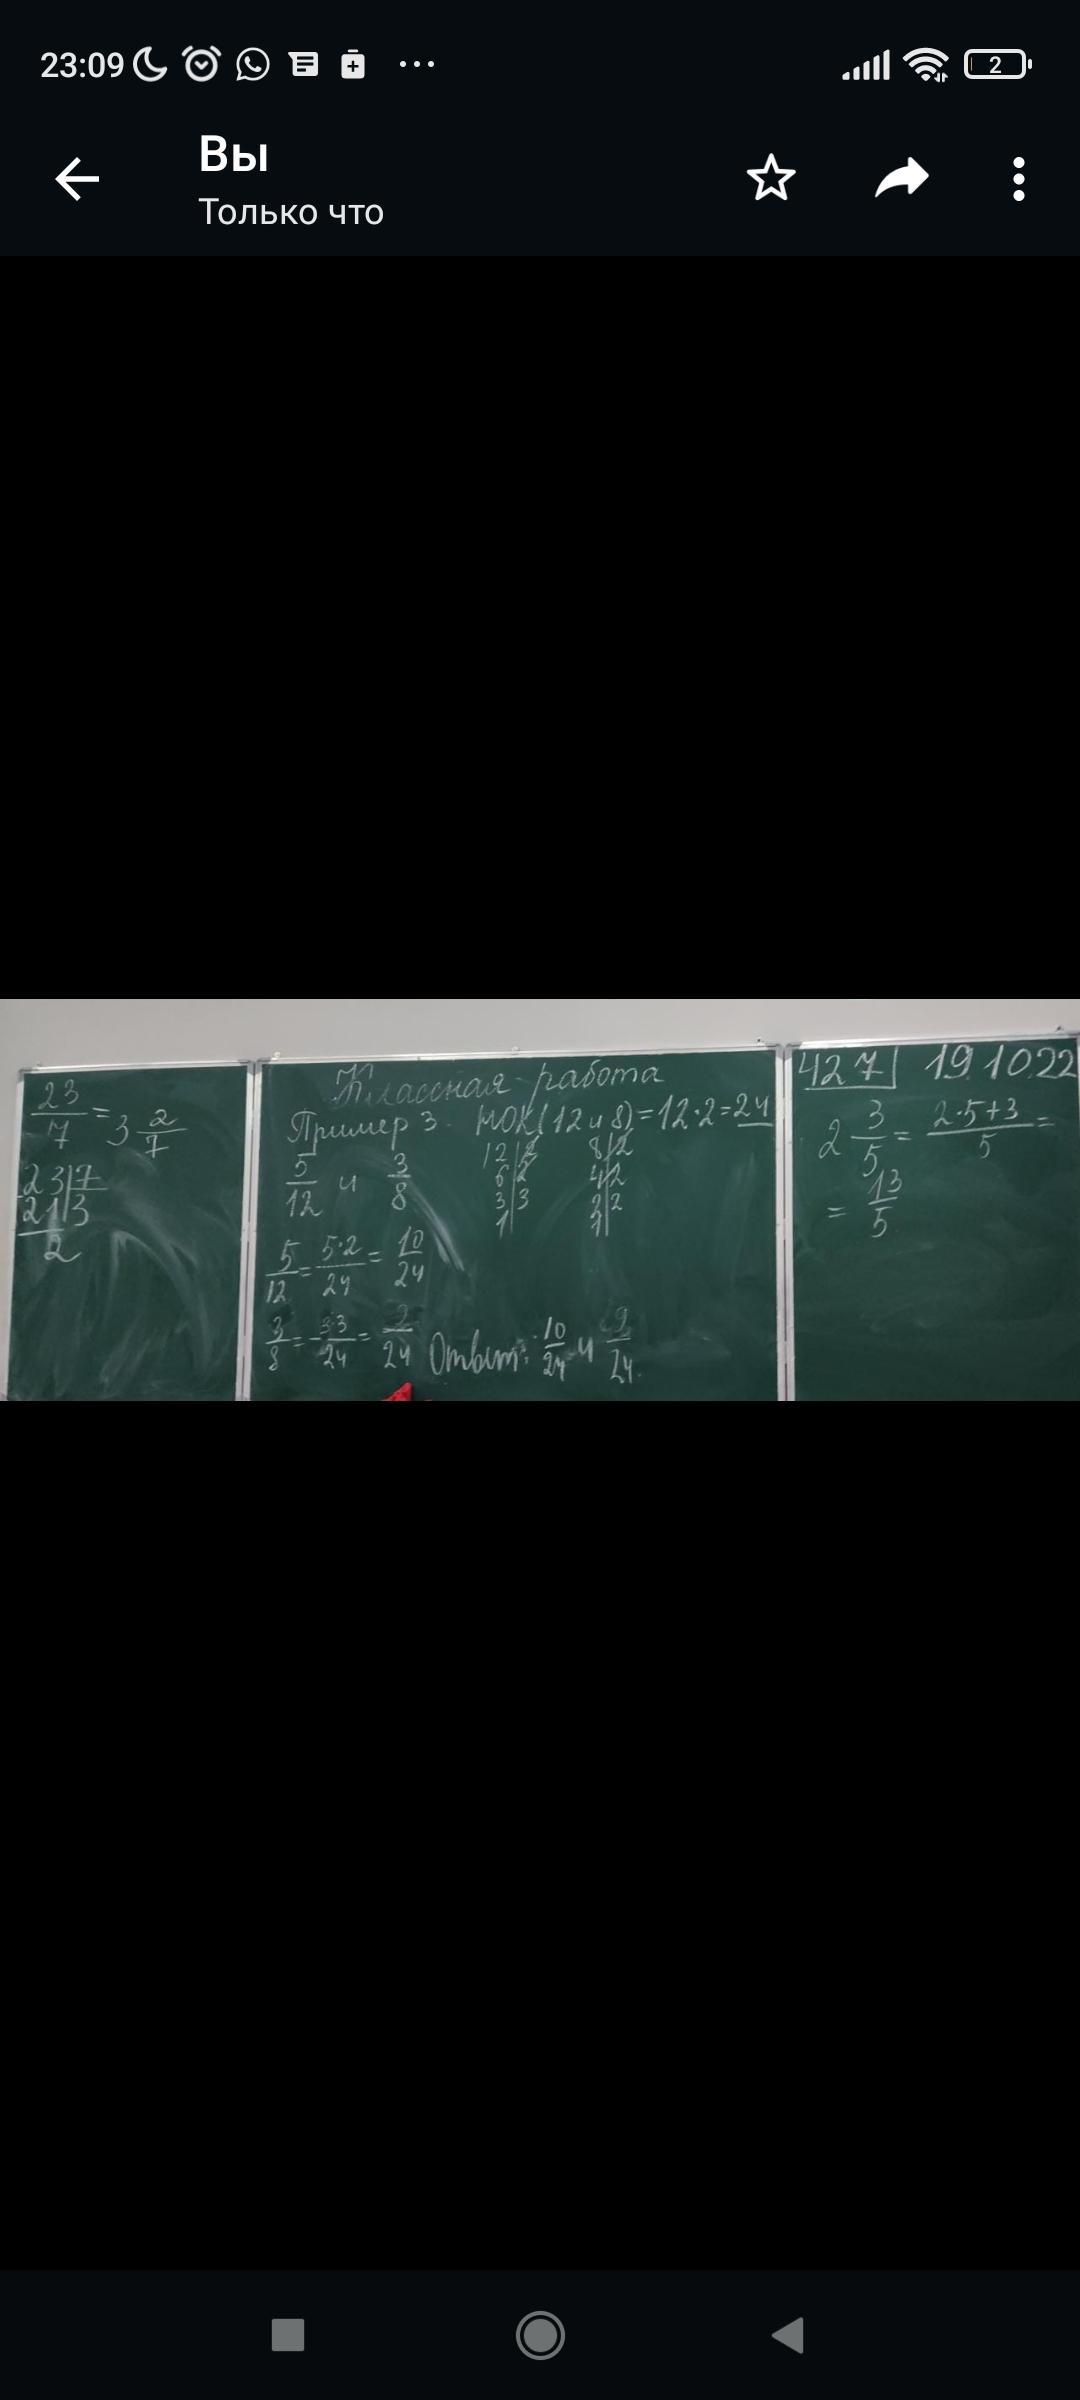 23:09 ... 2
Вы
Только что
23/7 = 3 2/7
23|7
21|3
2
Классная работа
Пример 3. НОК(12 и 8)=12·2=24
5/12 и 3/8
12|2 8|2
6|2 4|2
3|3 2|2
1| 1|
5/12 = 5·2/24 = 10/24
3/8 = 3·3/24 = 9/24 Ответ: 10/24 и 9/24.
427 19.10.22
2 3/5 = 2·5+3/5 =
= 13/5